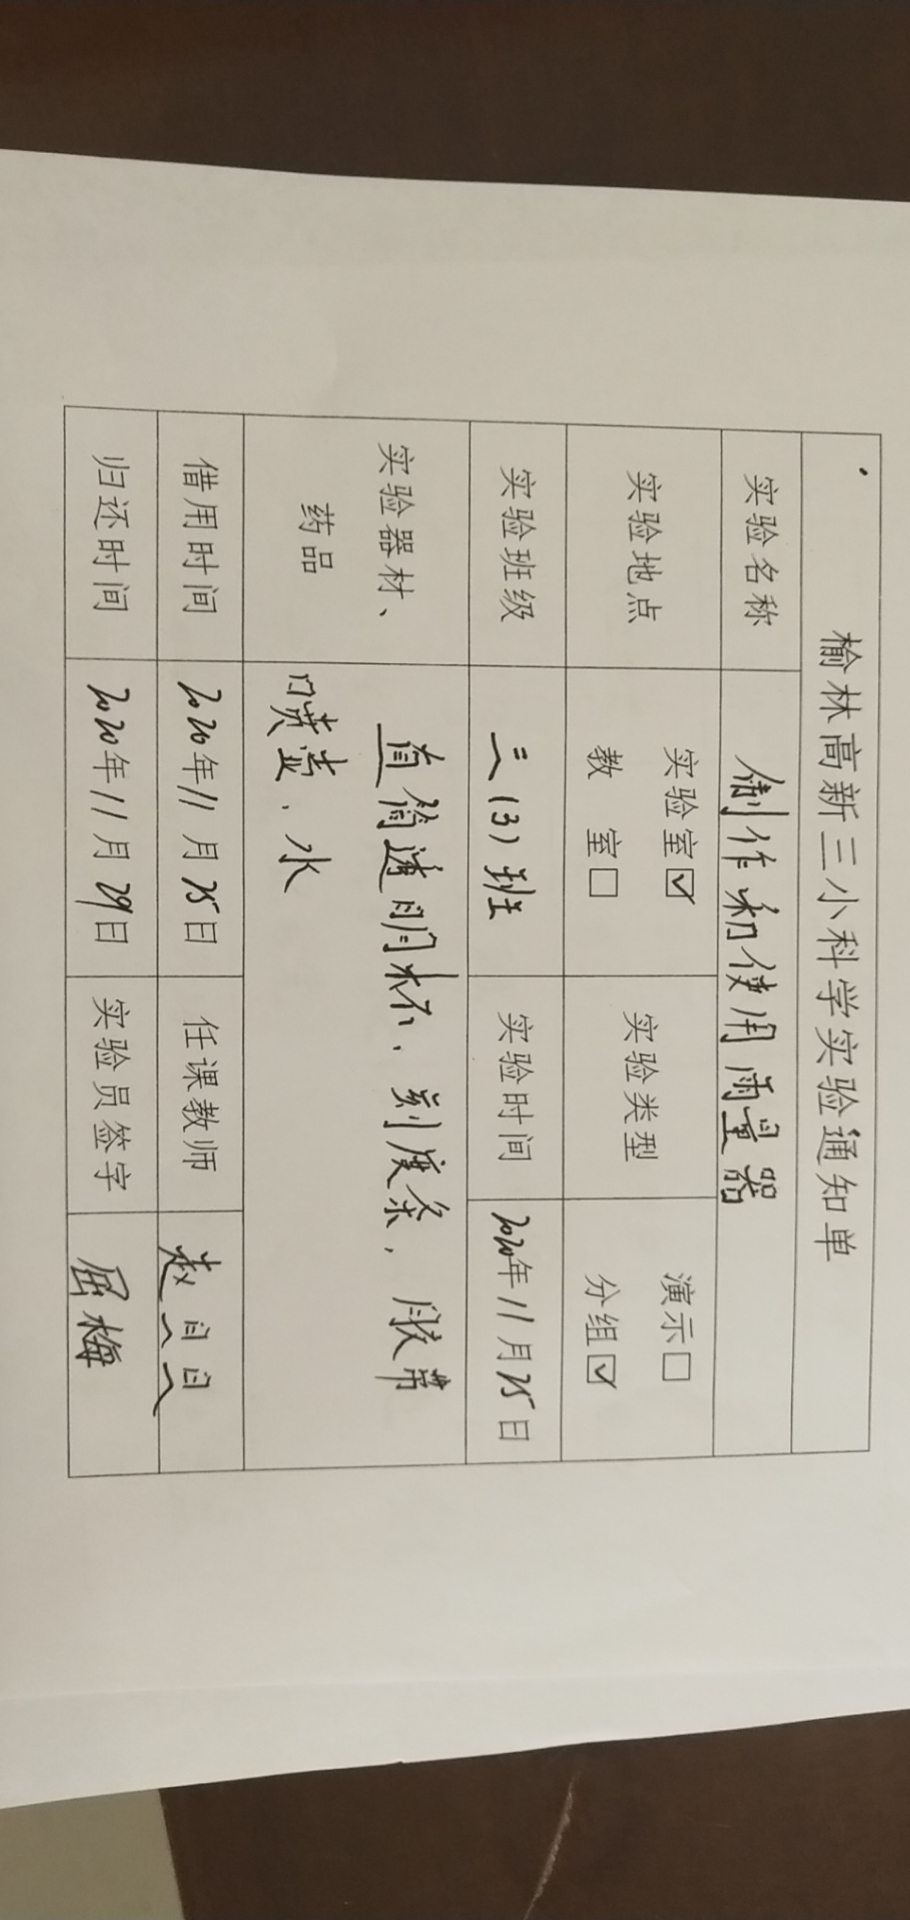 榆林高新三小科学实验通知单
实验名称 制作和使用雨量器
实验地点 实验室☑ 教 室☐ 实验类型 演示☐ 分组☑
实验班级 三(3)班 实验时间 2020年11月25日
实验器材、药品 直筒透明杯、刻度条、胶带
喷壶、水
借用时间 2020年11月25日 任课教师 赵
归还时间 2020年11月29日 实验员签字 屈梅